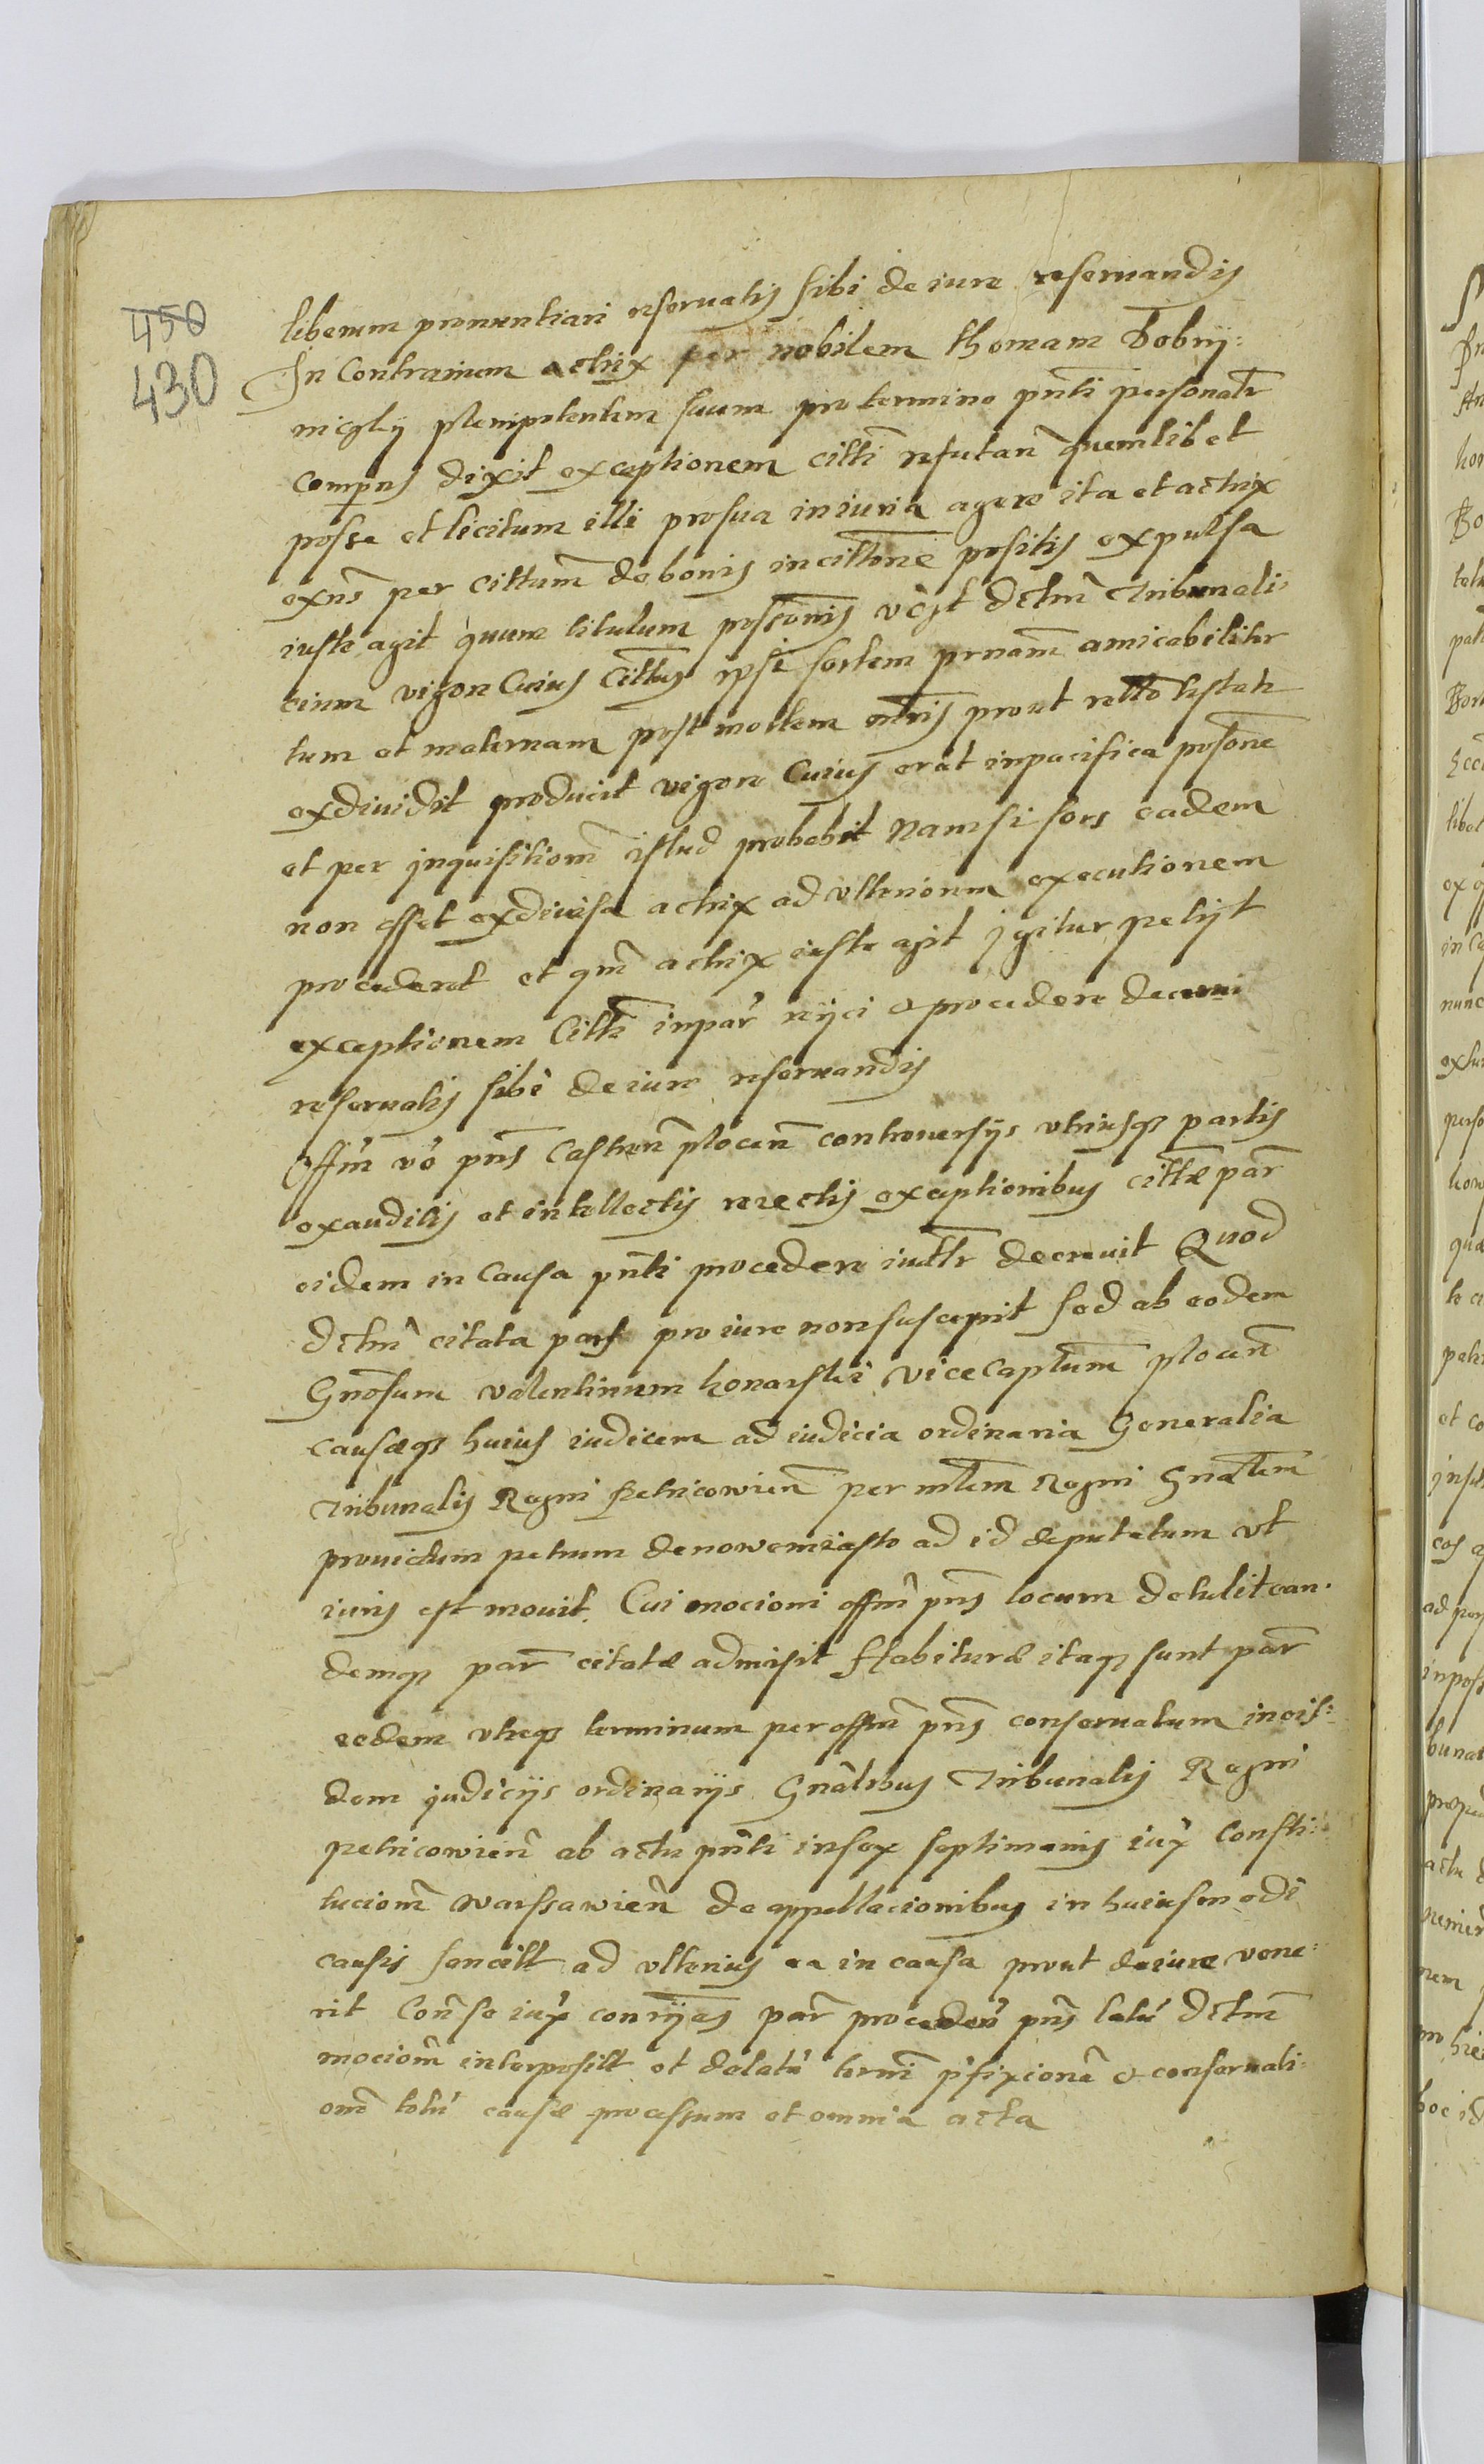 450
430
liberum pronuntiari reseruatis sibi de iure reseruandis
In Contrarium actrix per nobilem thomam Dobrij:
nicʒky plenipotentem suum pro termino pñti personalr
compns dixit exceptionem cittī refutan̄ quemlibet
posse et licitum illi pro sua iniuria agere ita et actrix
exns̄ per cittum̄ de bonis in cittone positis expulsa
iuste agit quum titulum possonis dctm̄ Tribunali
cium vigore Cuius Cittus ipsi sortem amicabiliter
tum et maternam post mortem mtris prout testatr
exdiuidit producit vigore Cuius erat in pacifica possone
et per jnquisitiom̄ istud probabit Nam si sors eadem
non esset exdiuisa actrix ad vlteriorem executionem
procederet et qm̄ actrix iuste agit jgitur petijt
exceptionem Citte inpar reijci et procedere decerni
reseruatis sibi de iure reseruandis
Offm̄ vo pns̄ Castren̄ plocen̄ controuersijs vtriusqȝ partis
exauditis et intellectis reiectis exceptionibus cittæ par
eidem in Causa pñti procedere iudtr decreuit Quod
dctm̄ citata pars pro iure non suscepit sed ab eodem
Gnosum valentinum konarski viceCaptum̄ plocen̄
causæqȝ huius iudicem ad iudicia ordinaria Generalia
Tribunalis Regni petricowien̄ per mlem Regni Gnalem
prouidum petrum de nowemiasto ad id deputatum vt
iuris est mouit. Cui mocioni offm̄ pns̄ locum detulit ean:
demqȝ par̄ citatæ admisit Stabituræ itaqȝ sunt par̄
eædem vtreqȝ terminum per offm̄ pns̄ conseruatum in eis:
dem judicijs ordinarijs Gnalibus Tribunalis Regni
petricowien̄ ab actu pñti in sex septimanis iux̄ Consti:
tuciom̄ warssawien̄ de appellacionibus in huiusmodi
causis sancitt ad vlterius ea in causa prout de iure vene:
rit Con̄ se iux̄ par̄ proceden̄ pns̄ dctm̄
mociom̄ interpositt et delatu termi p̄fixione et conseruati
one totu causæ processum et omnia acta